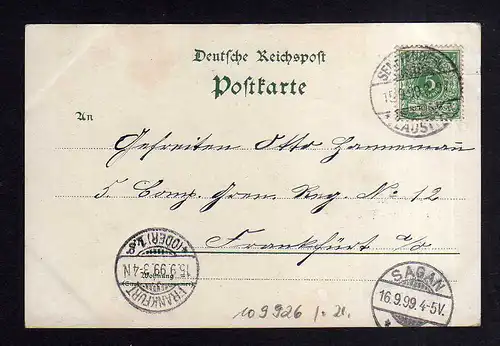 Deutsche Reichspost
Postkarte
An
5
LAUSITZ
Gefreiten Otto Hannemann
5. Comp. Gren. Reg. No 12
Frankfurt a/o
Wohnung
FRANKFURT
(ODER) 1.
15.9.99. 3-4 N
SAGAN
16.9.99. 4-5V.
109926